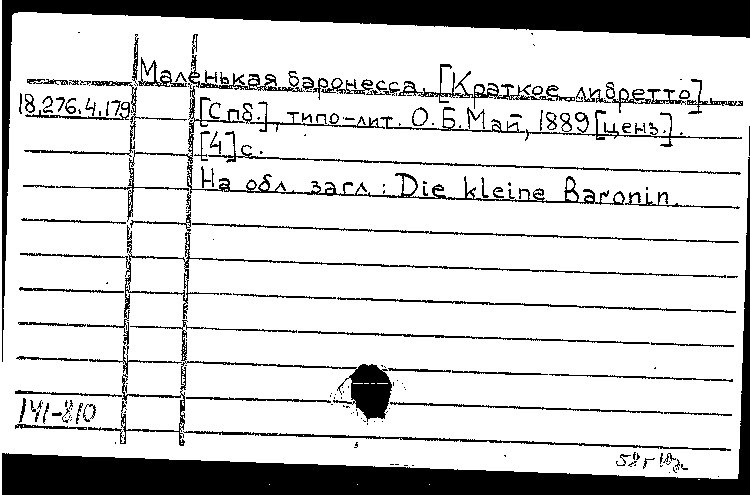 Маленькая баронесса. [Краткое либретто].
18.276.4.179 [Спб.], типо-лит. О.Б.Май, 1889 [ценз.].
[4] с.
На обл. загл.: Die kleine Baronin.
141-810